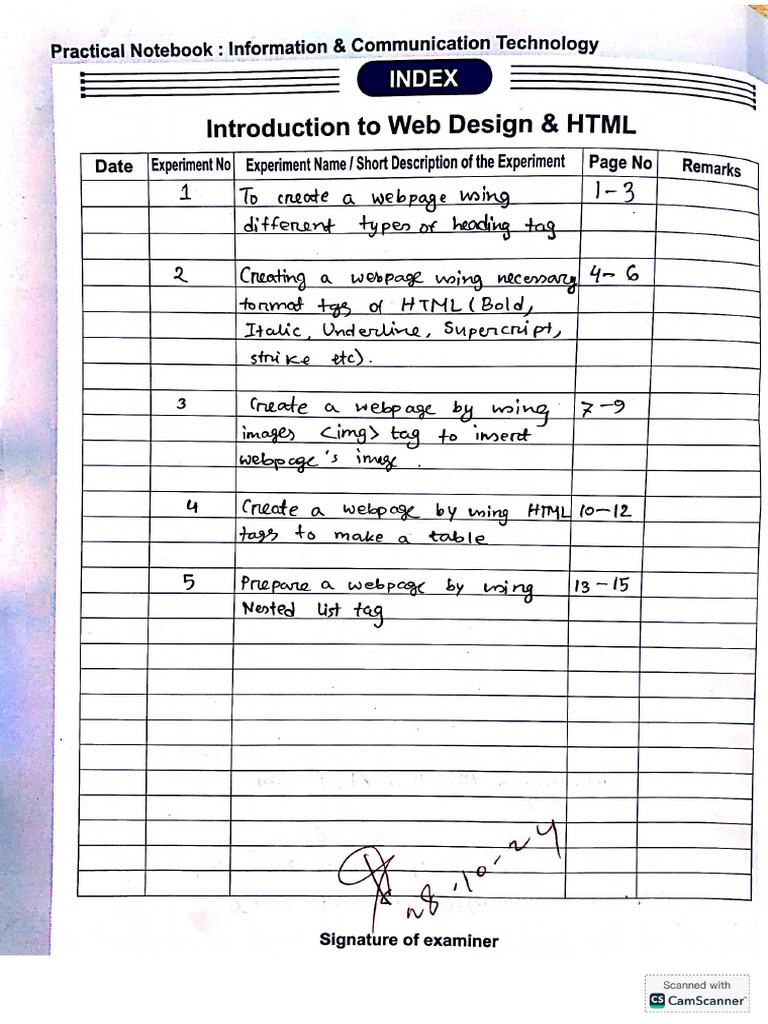 Practical Notebook : Information & Communication Technology
INDEX
Introduction to Web Design & HTML
Date Experiment No Experiment Name / Short Description of the Experiment Page No Remarks
1 To create a webpage using 1-3
different types of heading tag
2 Creating a webpage using necessary 4-6
format tgs of HTML (Bold,
Italic, Underline, Supercript,
strike etc).
3 Create a webpage by using 7-9
images <img> tag to insert
webpage's image.
4 Create a webpage by using HTML 10-12
tags to make a table
5 Prepare a webpage by using 13-15
Nested list tag
28.10-24
Signature of examiner
Scanned with
CS CamScanner